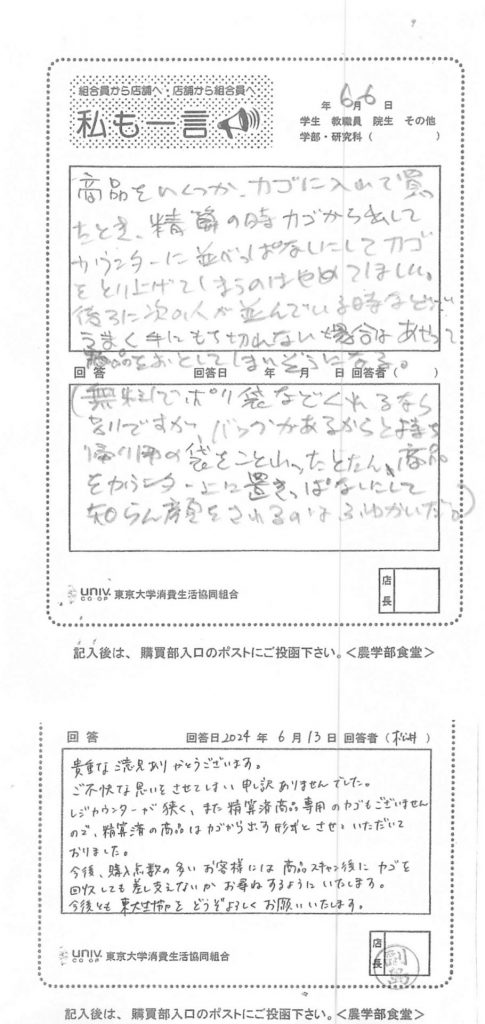 組合員から店舗へ・店舗から組合員へ
私も一言
年 6月6日
学生 教職員 院生 その他
学部・研究科( )
商品をいくつか、カゴに入れて買っ
たとき、精算の時カゴから出して
カウンターに並べっぱなしにしてカゴ
をとり上げてしまうのはやめてほしい。
後ろに次の人が並んでいる時などに
うまく手にもち切れない場合はあせって
商品をおとしてしまいそうになる。
回答 回答日 年 月 日 回答者( )
(無料でポリ袋などくれるなら
別ですが、バッグがあるからと
帰り用の袋をことわったとたん、商品
をカウンター上に置きっぱなしにして
知らん顔をされるのはふゆかいだ。)
店長
univ. CO-OP 東京大学消費生活協同組合
記入後は、購買部入口のポストにご投函下さい。<農学部食堂>
回答 回答日2024年6月13日回答者(松井)
貴重なご意見ありがとうございます。
ご不快な思いをさせてしまい申し訳ありませんでした。
レジカウンターが狭く、また精算済商品専用のカゴもございません
ので、精算済の商品はカゴから出す形式とさせていただいて
おりました。
今後、購入点数の多いお客様には商品スキャン後にカゴを
回収しても差し支えないかお尋ねするようにいたします。
今後とも東大生協をどうぞよろしくお願いいたします。
店長
univ. CO-OP 東京大学消費生活協同組合
記入後は、購買部入口のポストにご投函下さい。<農学部食堂>